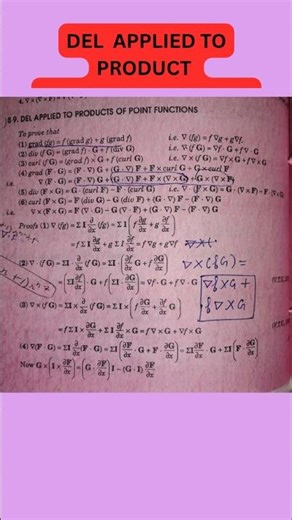 DEL APPLIED TO
PRODUCT
8·9. DEL APPLIED TO PRODUCTS OF POINT FUNCTIONS
To prove that
(1) grad (fg) = f (grad g) + g (grad f) i.e. ∇ (fg) = f ∇g + g∇f.
(2) div (f G) = (grad f) · G + f (div G) i.e. ∇·(f G) = ∇f · G + f∇ · G
(3) curl (f G) = (grad f) × G + f (curl G) i.e. ∇ × (f G) = ∇f × G + f ∇ × G
(4) grad (F · G) = (F · ∇) G + (G · ∇) F + F × curl G + G × curl F
i.e. ∇(F · G) = (F · ∇) G + (G · ∇) F + F × (∇ × G) + G × (∇ × F)
(5) div (F × G) = G · (curl F) – F · (curl G) i.e. ∇ · (F × G) = G · (∇ × F) – F · (∇ × G)
(6) curl (F × G) = F (div G) – G (div F) + (G · ∇) F – (F · ∇) G
i.e. ∇ × (F × G) = F (∇ · G) – G (∇ · F) + (G · ∇) F – (F · ∇) G
Proofs (1) ∇ (fg) = Σ I ∂/∂x (fg) = Σ I (f ∂g/∂x + g ∂f/∂x)
= f Σ I ∂g/∂x + g Σ I ∂f/∂x = f ∇g + g∇f
(2) ∇ · (f G) = ΣI · ∂/∂x (f G) = ΣI · (∂f/∂x G + f ∂G/∂x)
∇×(fG) =
= ΣI ∂f/∂x · G + f (ΣI · ∂G/∂x) = ∇f · G + f∇ · G
∇f×G +
f∇×G
(3) ∇ × (f G) = ΣI × ∂/∂x (f G) = Σ I × (f ∂G/∂x + ∂f/∂x G)
= f Σ I × ∂G/∂x + Σ I ∂f/∂x × G = f∇ × G + ∇f × G
(4) ∇(F · G) = ΣI ∂/∂x (F · G) = ΣI (∂F/∂x · G + F · ∂G/∂x) = ΣI ∂F/∂x · G + ΣI (F · ∂G/∂x)
Now G × (I × ∂F/∂x) = (G · ∂F/∂x) I – (G · I) ∂F/∂x